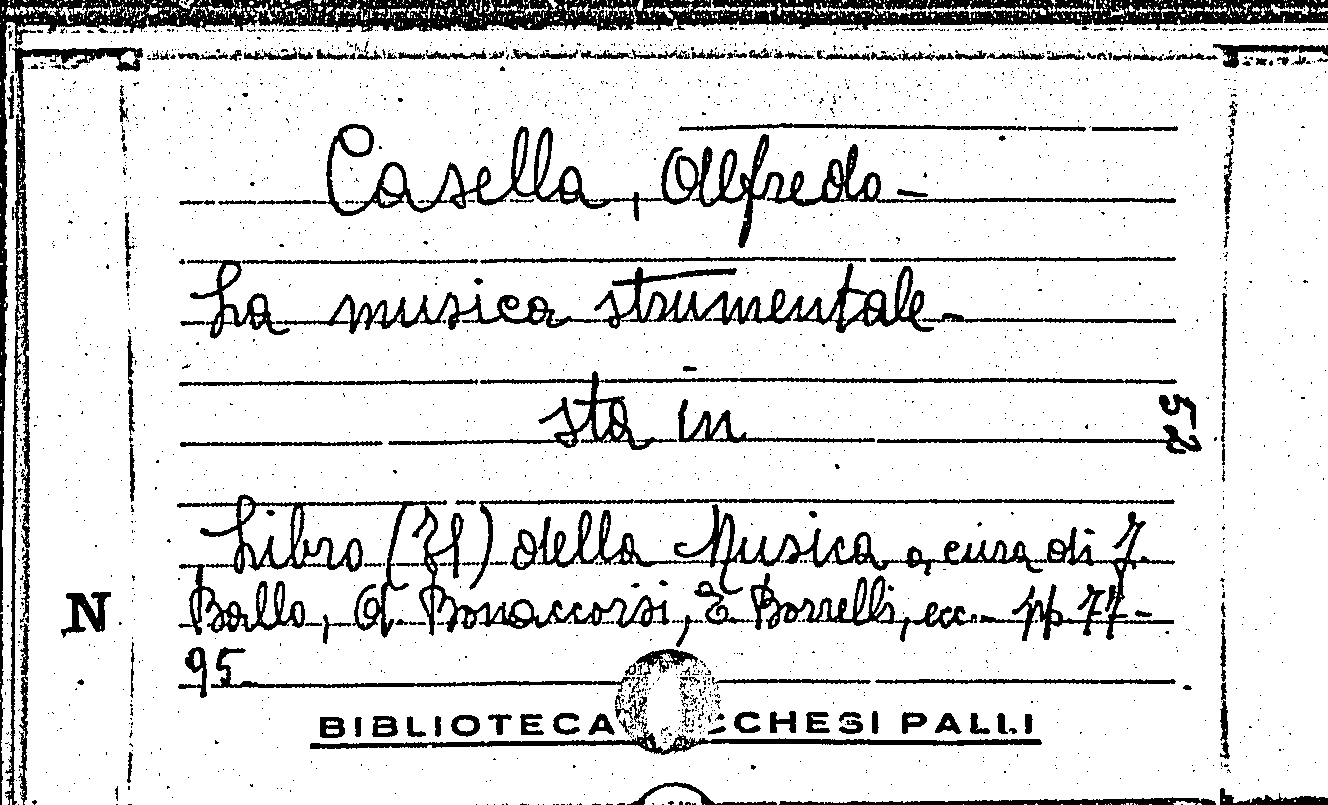 Casella, Alfredo -
La musica strumentale -
sta in
52
Libro (Il) della Musica a cura di F.
N
Ballo, A. Bonaccorsi, E. Borrelli, ecc. - pp. 77-
95
BIBLIOTECA CCHESI PALLI